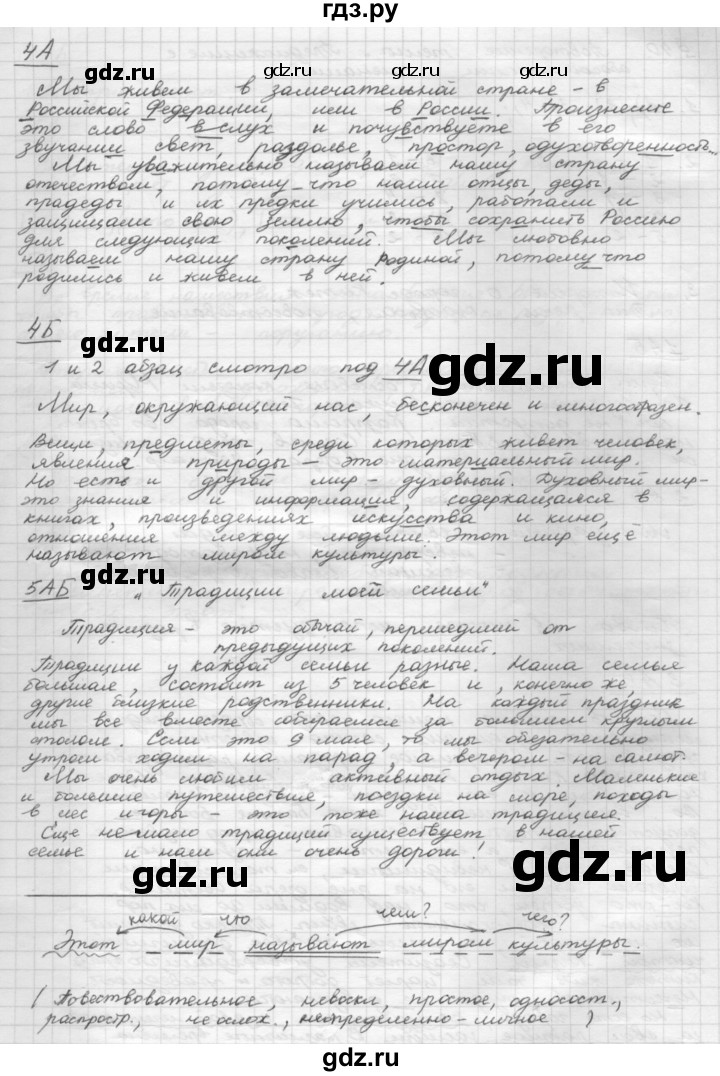 гдз.ру
4А
Мы живем в замечательной стране - в
Российской Федерации, или в России. Произнесите
это слово в слух и почувствуете в его
звучании свет, раздолье, простор, одухотворенность...
Мы уважительно называем нашу страну
отечеством, потому-что наши отцы, деды,
прадеды и их предки учились, работали и
защищали свою землю, чтобы сохранить Россию
для следующих поколений. Мы любовно
называем нашу страну Родиной, потому что
родились и живем в ней.
4Б
1 и 2 абзац смотро под 4А
Мир, окружающий нас, бесконечен и многообразен.
Вещи, предметы, среди которых живет человек,
явления природы - это материальный мир.
Но есть и другой мир - духовный. Духовный мир -
это знания и информация, содержащаяся в
книгах, произведениях искусства и кино,
отношения между людьми. Этот мир ещё
называют миром культуры.
5АБ „Традиции моей семьи"
Традиция - это обычай, перешедший от
предыдущих поколений.
Традиции у каждой семьи разные. Наша семья
большая, состоит из 5 человек и, конечно же,
другие близкие родственники. На каждый праздник
мы все вместе собираемся за большим круглым
столом. Если это 9 мая, то мы обязательно
утром ходим на парад, а вечером - на салют.
Мы очень любим активный отдых. Маленькие
и большие путешествия, поездки на море, походы
в лес и горы - это тоже наша традиция.
Еще не мало традиций существует в нашей
семье и нам они очень дороги!
какой что чем? чего?
Этот мир называют миром культуры.
(Повествовательное, невоскл, простое, односост.,
распростр., не ослож., неопределенно-личное)
gdz.ru
gdz.ru
gdz.ru
gdz.ru
gdz.ru
gdz.ru
gdz.ru
gdz.ru
gdz.ru
gdz.ru